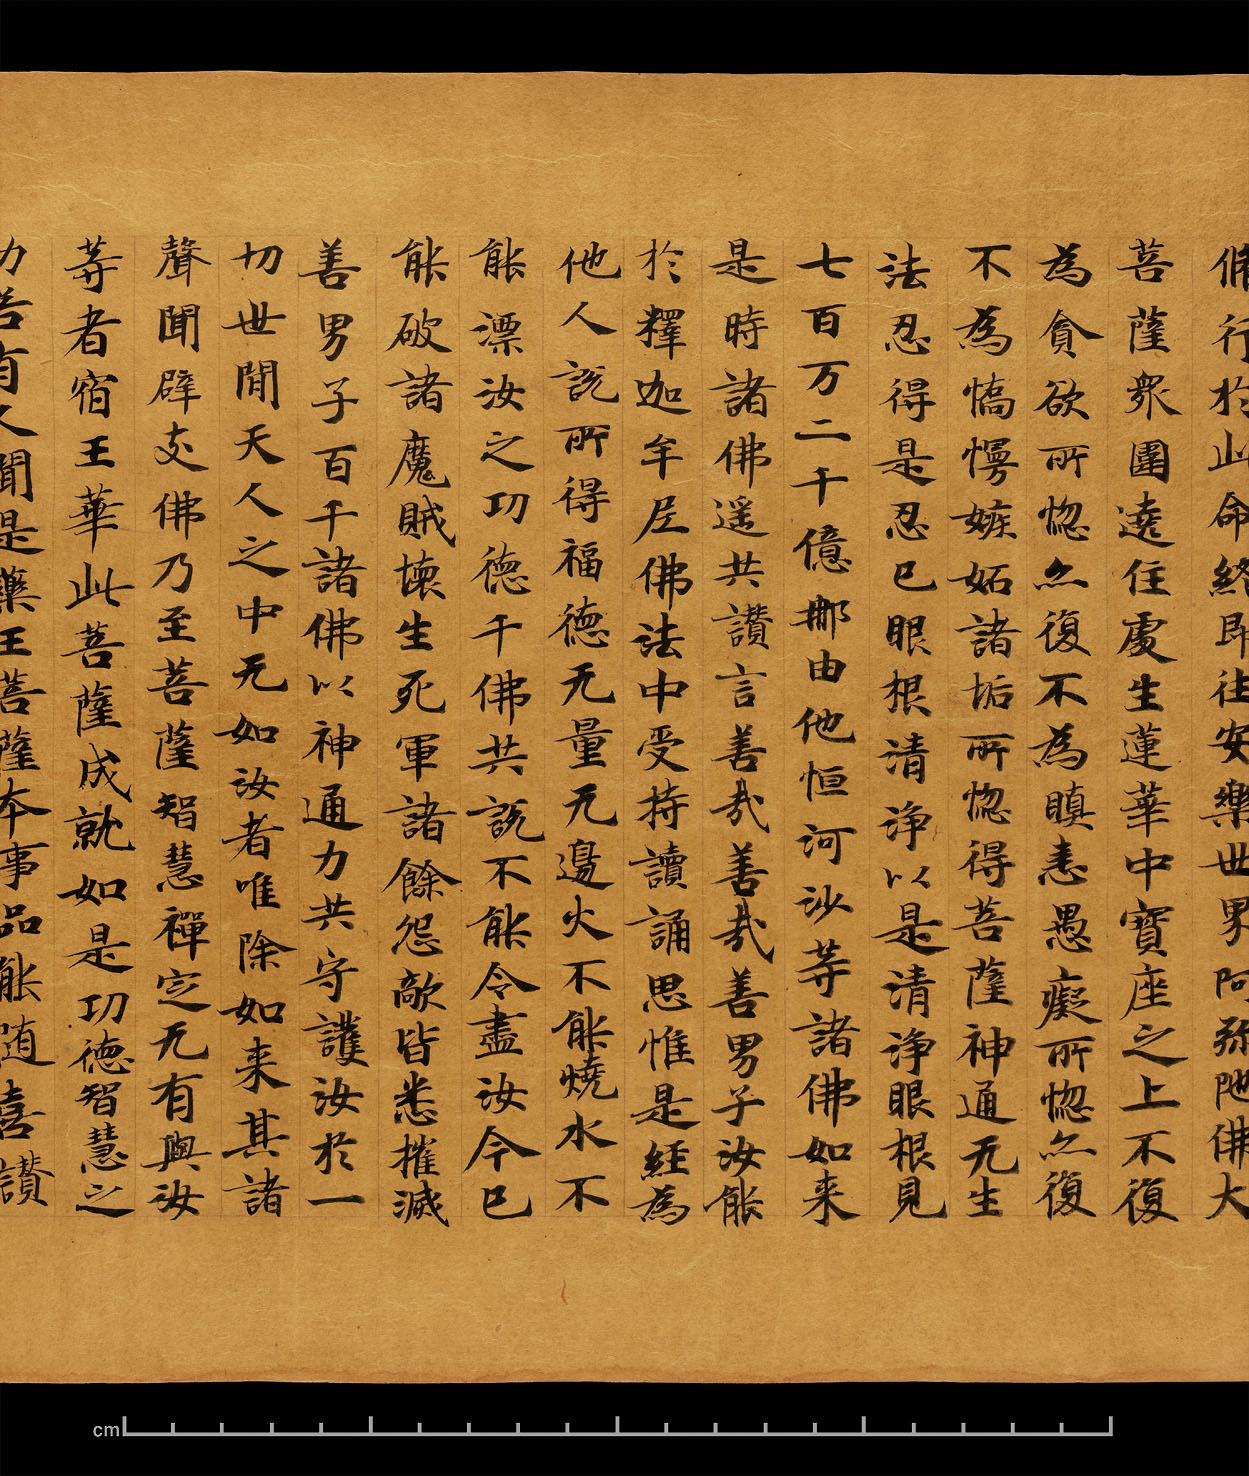 脩行於此命終即往安樂世界阿弥陁佛大
菩薩衆圍遶住處生蓮華中寶座之上不復
為貪欲所惚亦復不為瞋恚愚癡所惚亦復
不為憍慢嫉妬諸垢所惚得菩薩神通无生
法忍得是忍已眼根清淨以是清淨眼根見
七百万二千億那由他恒河沙等諸佛如来
是時諸佛遥共讃言善哉善哉善男子汝能
於釋迦牟尼佛法中受持讀誦思惟是經為
他人說所得福德无量无邊火不能燒水不
能漂汝之功德千佛共說不能令盡汝今已
能破諸魔賊壞生死軍諸餘怨敵皆悉摧滅
善男子百千諸佛以神通力共守護汝於一
切世間天人之中无如汝者唯除如来其諸
聲聞辟支佛乃至菩薩智慧禪定无有與汝
等者宿王華此菩薩成就如是功德智慧之
力若有人聞是藥王菩薩本事品能随喜讃